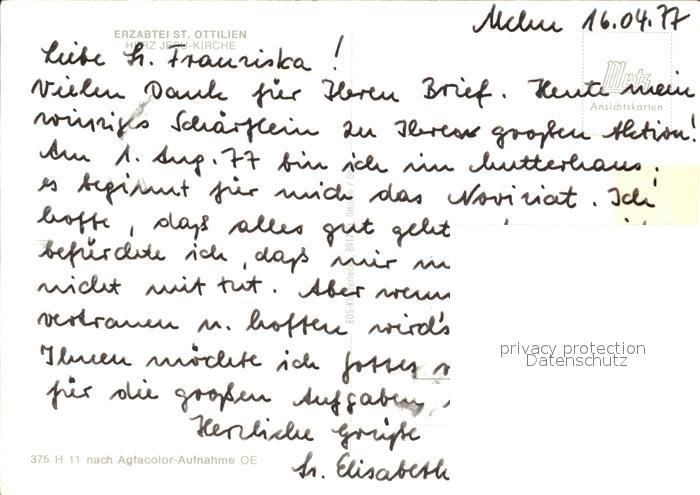 Mchn 16.04.77
ERZABTEI ST. OTTILIEN
HERZ JESU-KIRCHE
Liebe Sr. Franziska!
Vielen Dank für Ihren Brief. Heute mein
winziges Schärflein zu Ihrer großen Aktion!
Metz
Ansichtskarten
Am 1. Aug. 77 bin ich im Mutterhaus:
es beginnt für mich das Noviziat. Ich
hoffe, daß alles gut geht
befürchte ich, daß mir
nicht mit tut. Aber wenn
vertrauen u. hoffen wird's
Ihnen möchte ich Gottes
für die großen Aufgaben
Herzliche Grüße
Sr. Elisabeth
privacy protection
Datenschutz
375 H 11 nach Agfacolor-Aufnahme OE